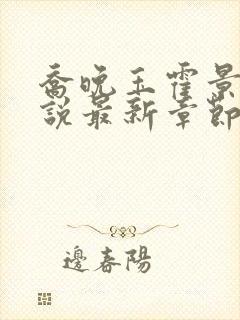 喬晚玉霍景
說最新章節
邊春陽